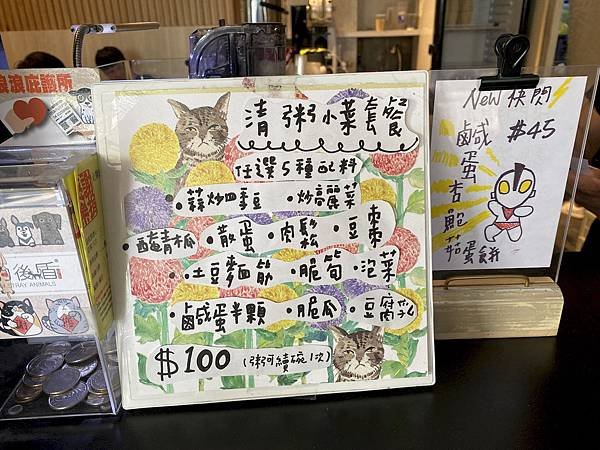 浪浪庇護所
後盾
STRAY ANIMALS
清粥小菜套餐
任選5種配料
·蒜炒四季豆 ·炒高麗菜
·醋青木瓜 ·散蛋 ·肉鬆 ·豆棗
·土豆麵筋 ·脆筍 ·泡菜
·鹹蛋半顆 ·脆瓜 ·豆腐
$100 (粥可續碗1次)
New 快閃
$45
鹹蛋杏鮑菇蛋餅